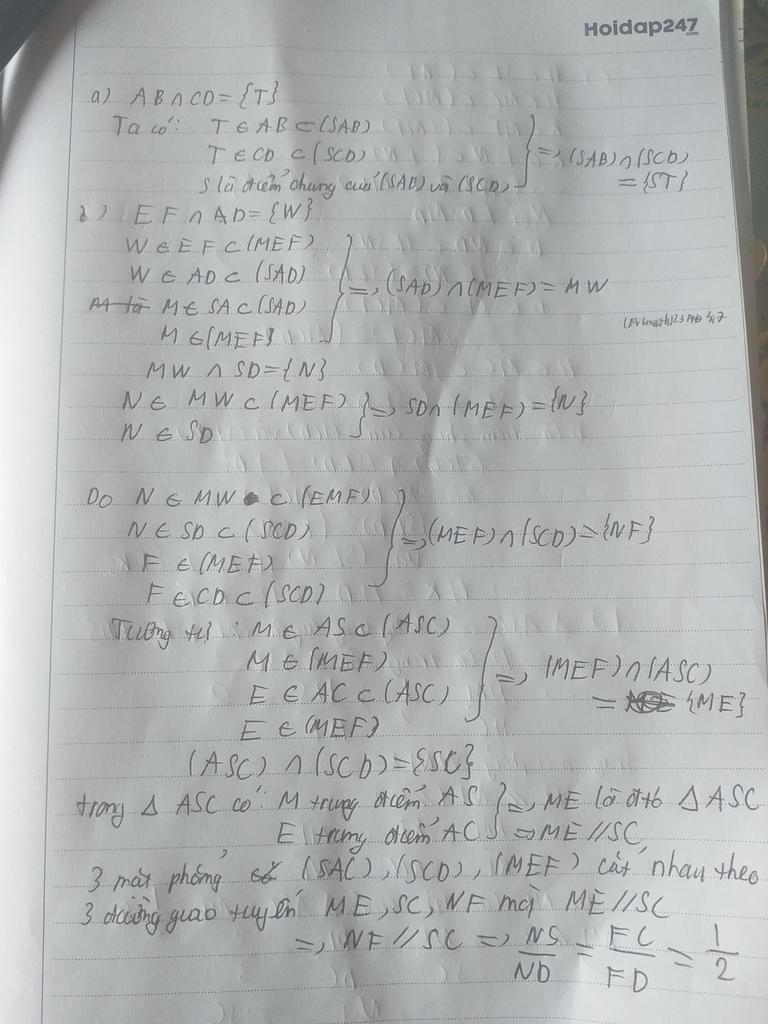 Hoidap247
.com
a) AB ∩ CD = {T}
Ta có: T ∈ AB ⊂ (SAB)
T ∈ CD ⊂ (SCD)
S là điểm chung của (SAB) và (SCD)
=> (SAB) ∩ (SCD)
= {ST}
b) EF ∩ AD = {W}
W ∈ EF ⊂ (MEF)
W ∈ AD ⊂ (SAD)
M ∈ SA ⊂ (SAD)
M ∈ (MEF)
=> (SAD) ∩ (MEF) = MW
MW ∩ SD = {N}
N ∈ MW ⊂ (MEF)
N ∈ SD
=> SD ∩ (MEF) = {N}
Do N ∈ MW ⊂ (EMF)
N ∈ SD ⊂ (SCD)
F ∈ (MEF)
F ∈ CD ⊂ (SCD)
=> (MEF) ∩ (SCD) = {NF}
Tương tự: M ∈ AS ⊂ (ASC)
M ∈ (MEF)
E ∈ AC ⊂ (ASC)
E ∈ (MEF)
=> (MEF) ∩ (ASC)
= {ME}
(ASC) ∩ (SCD) = {SC}
trong Δ ASC có: M trung điểm AS
E trung điểm AC
=> ME là đtb Δ ASC
=> ME // SC
3 mặt phẳng (SAC), (SCD), (MEF) cắt nhau theo
3 đường giao tuyến ME, SC, NF mà ME // SC
=> NF // SC => NS/ND = FC/FD = 1/2